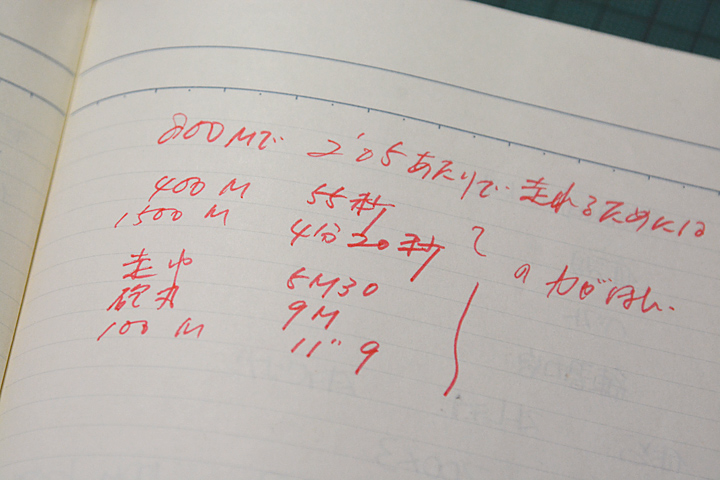 800Mで 2'05あたりで走れるためには
400M 55秒
1500M 4分20秒
の力がほしい
走巾 5M30
砲丸 9M
100M 11"9